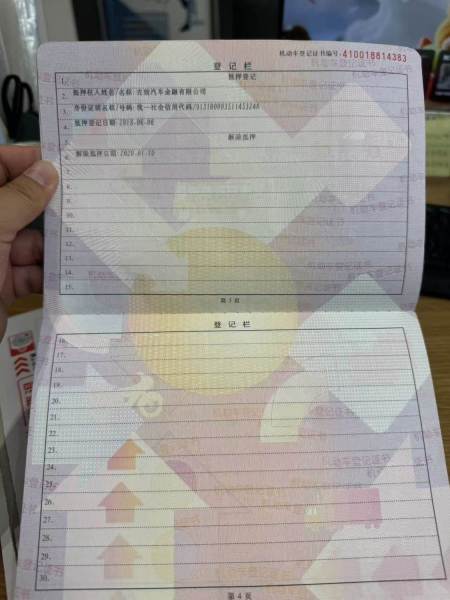 机动车登记证书编号:410018814383
登 记 栏
1. 抵押登记
2. 抵押权人姓名/名称:吉致汽车金融有限公司
3. 身份证明名称/号码:统一社会信用代码/
4. 抵押登记日期:2018-06-06
5. 解除抵押
6. 解除抵押日期:2020-01-10
7.
8.
9.
10.
11.
12.
13.
14.
15.
第 3 页
登 记 栏
16.
17.
18.
19.
20.
21.
22.
23.
24.
25.
26.
27.
28.
29.
30.
第 4 页